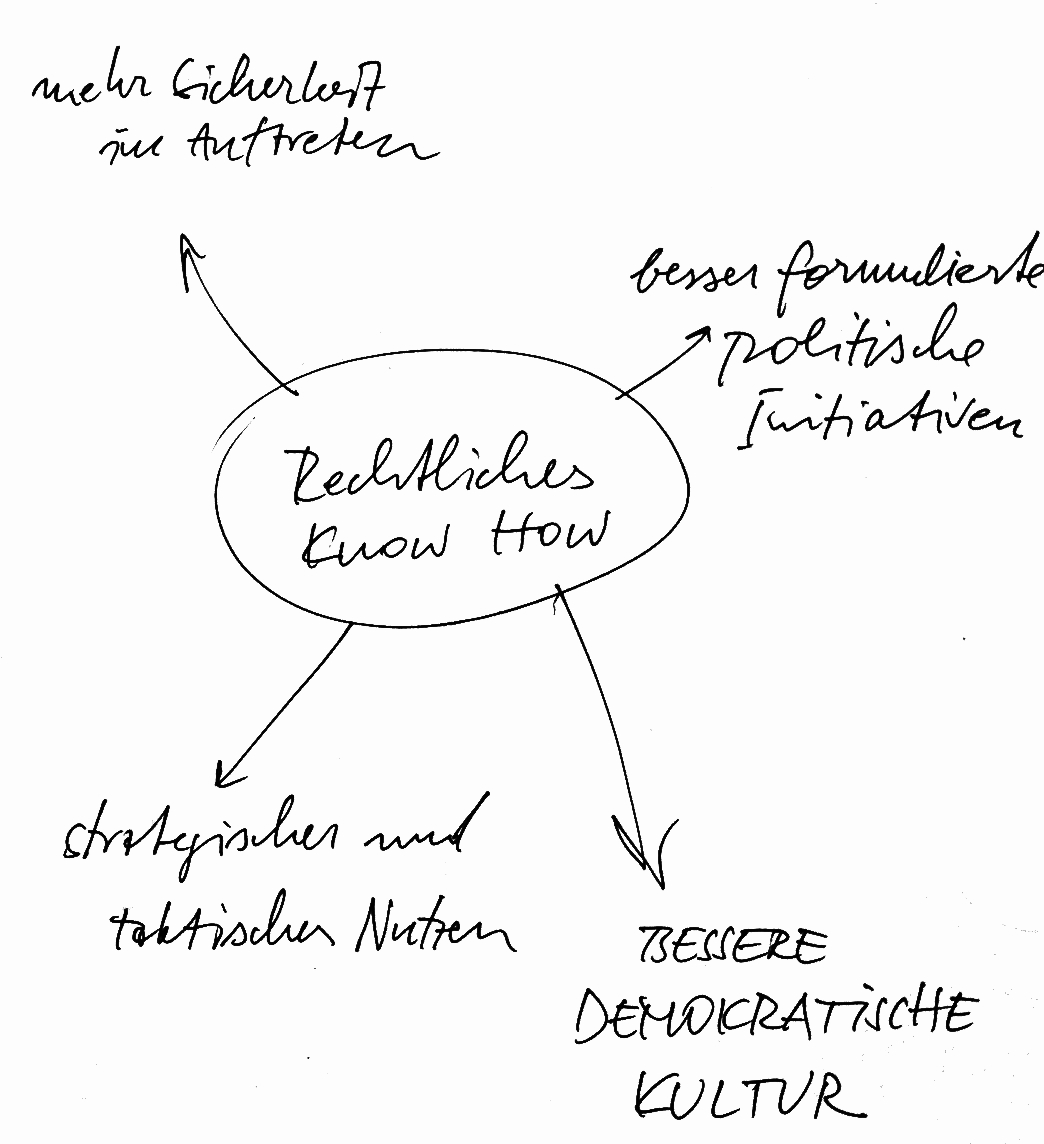 mehr Sicherheit
im Auftreten
besser formulierte
politische
Initiativen
Rechtliches
Know How
strategischer und
taktischer Nutzen
BESSERE
DEMOKRATISCHE
KULTUR